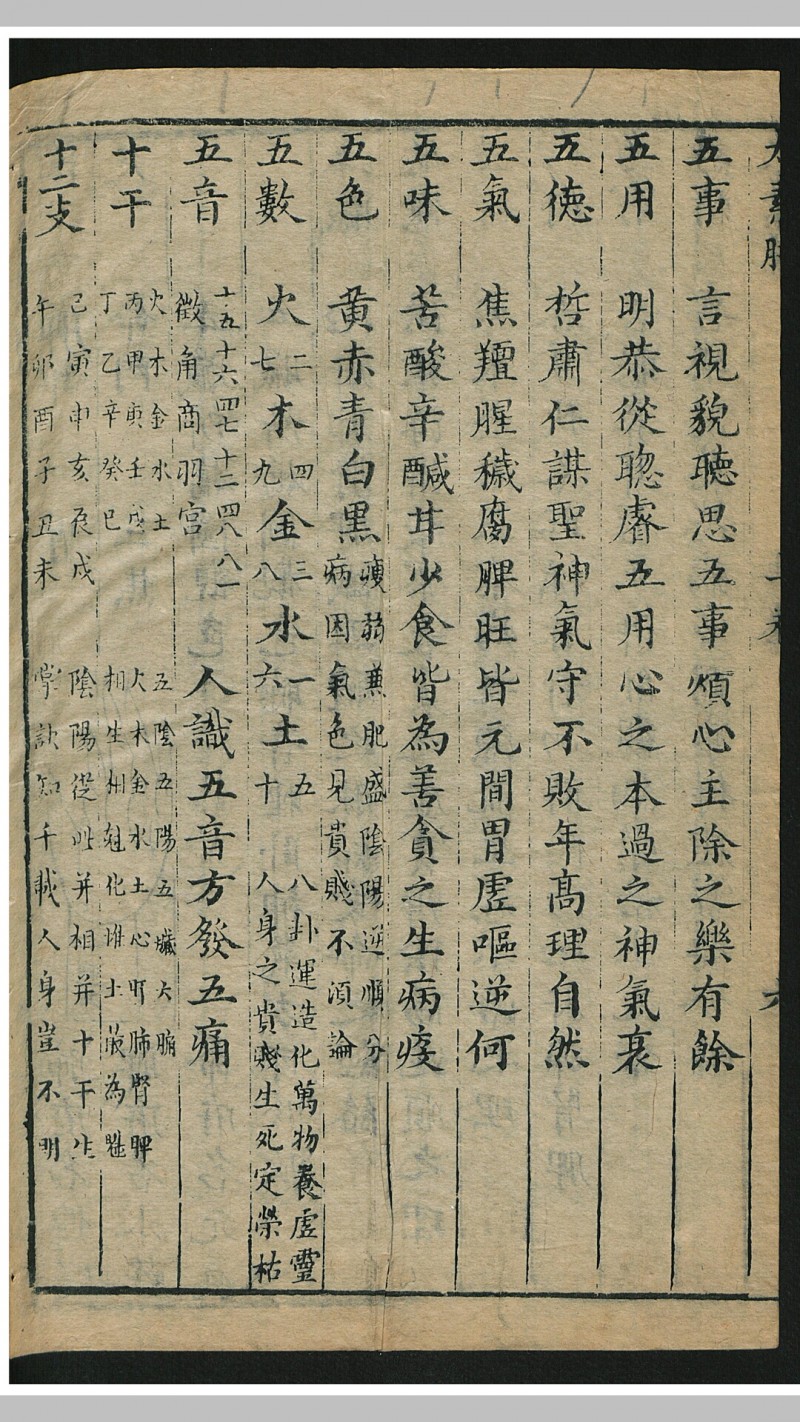 五事 言視貌聽思五事煩心主除之樂有餘
五用 明恭從聰睿五用心之本過之神氣衰
五德 哲肅仁謀聖神氣守不敗年高理自然
五氣 焦羶腥穢腐脾旺皆元間胃虛嘔逆何
五味 苦酸辛醎甘少食皆為善貪之生病疫
五色 黄赤青白黑
瘦弱兼肥盛陰陽逆順分
病因氣色見貴賤不須論
五數 火二七木四九金三八水一六土五十
八卦運造化萬物養虛靈
人身之貴賤生死定榮枯
五音
十五十六四七十二四八八一
徵角商羽宮
人識五音方發五痛
十干
火木金水土
丙甲庚壬戊
丁乙辛癸巳
五陰五陽五臟六腑
火木金水土心肝肺腎脾
相生相尅化堆土
為
十二支
己寅申亥辰戌
午卯酉子丑未
陰陽從此并相并十干生
掌訣知千載人身豈不明